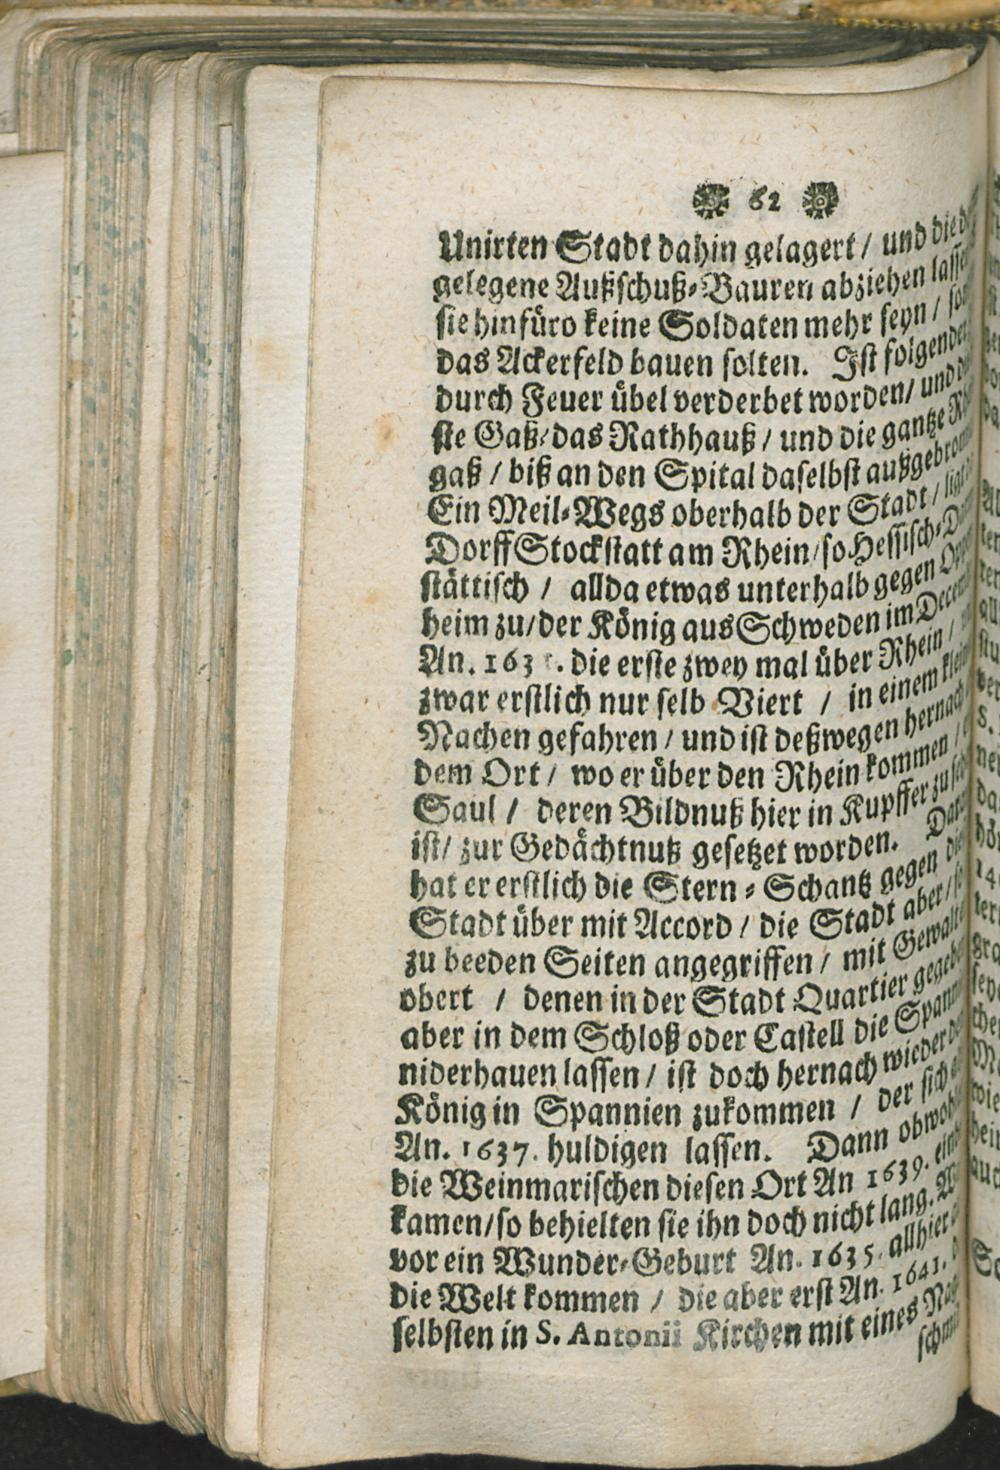 62
Unirten Stadt dahin gelagert / und die
gelegene Außschuß-Bauren abziehen lasse
sie hinfüro keine Soldaten mehr seyn /
das Ackerfeld bauen solten. Ist folgender
durch Feuer übel verderbet worden / und
ste Gaß / das Rathhauß / und die gantze
gaß / biß an den Spital daselbst außgebron
Ein Meil-Wegs oberhalb der Stadt / ligt
Dorff Stockstatt am Rhein / so Hessisch-
stättisch / allda etwas unterhalb gegen Opp
heim zu / der König aus Schweden im Decem
An. 163 . die erste zwey mal über Rhein /
zwar erstlich nur selb Viert / in einem klein
Nachen gefahren / und ist deßwegen hernach
dem Ort / wo er über den Rhein kommen /
Saul / deren Bildnuß hier in Kupffer zu
ist / zur Gedächtnuß gesetzet worden.
hat er erstlich die Stern-Schantz gegen
Stadt über mit Accord / die Stadt aber /
zu beeden Seiten angegriffen / mit Gewalt
obert / denen in der Stadt Quartier gegebe
aber in dem Schloß oder Castell die Spann
niderhauen lassen / ist doch hernach wieder
König in Spannien zukommen / der sich
An. 1637. huldigen lassen. Dann obwohl
die Weinmarischen diesen Ort An 1639.
kamen / so behielten sie ihn doch nicht lang.
vor ein Wunder-Geburt An. 1635. allhier
die Welt kommen / die aber erst An. 1641.
selbsten in S. Antonii Kirchen mit eines